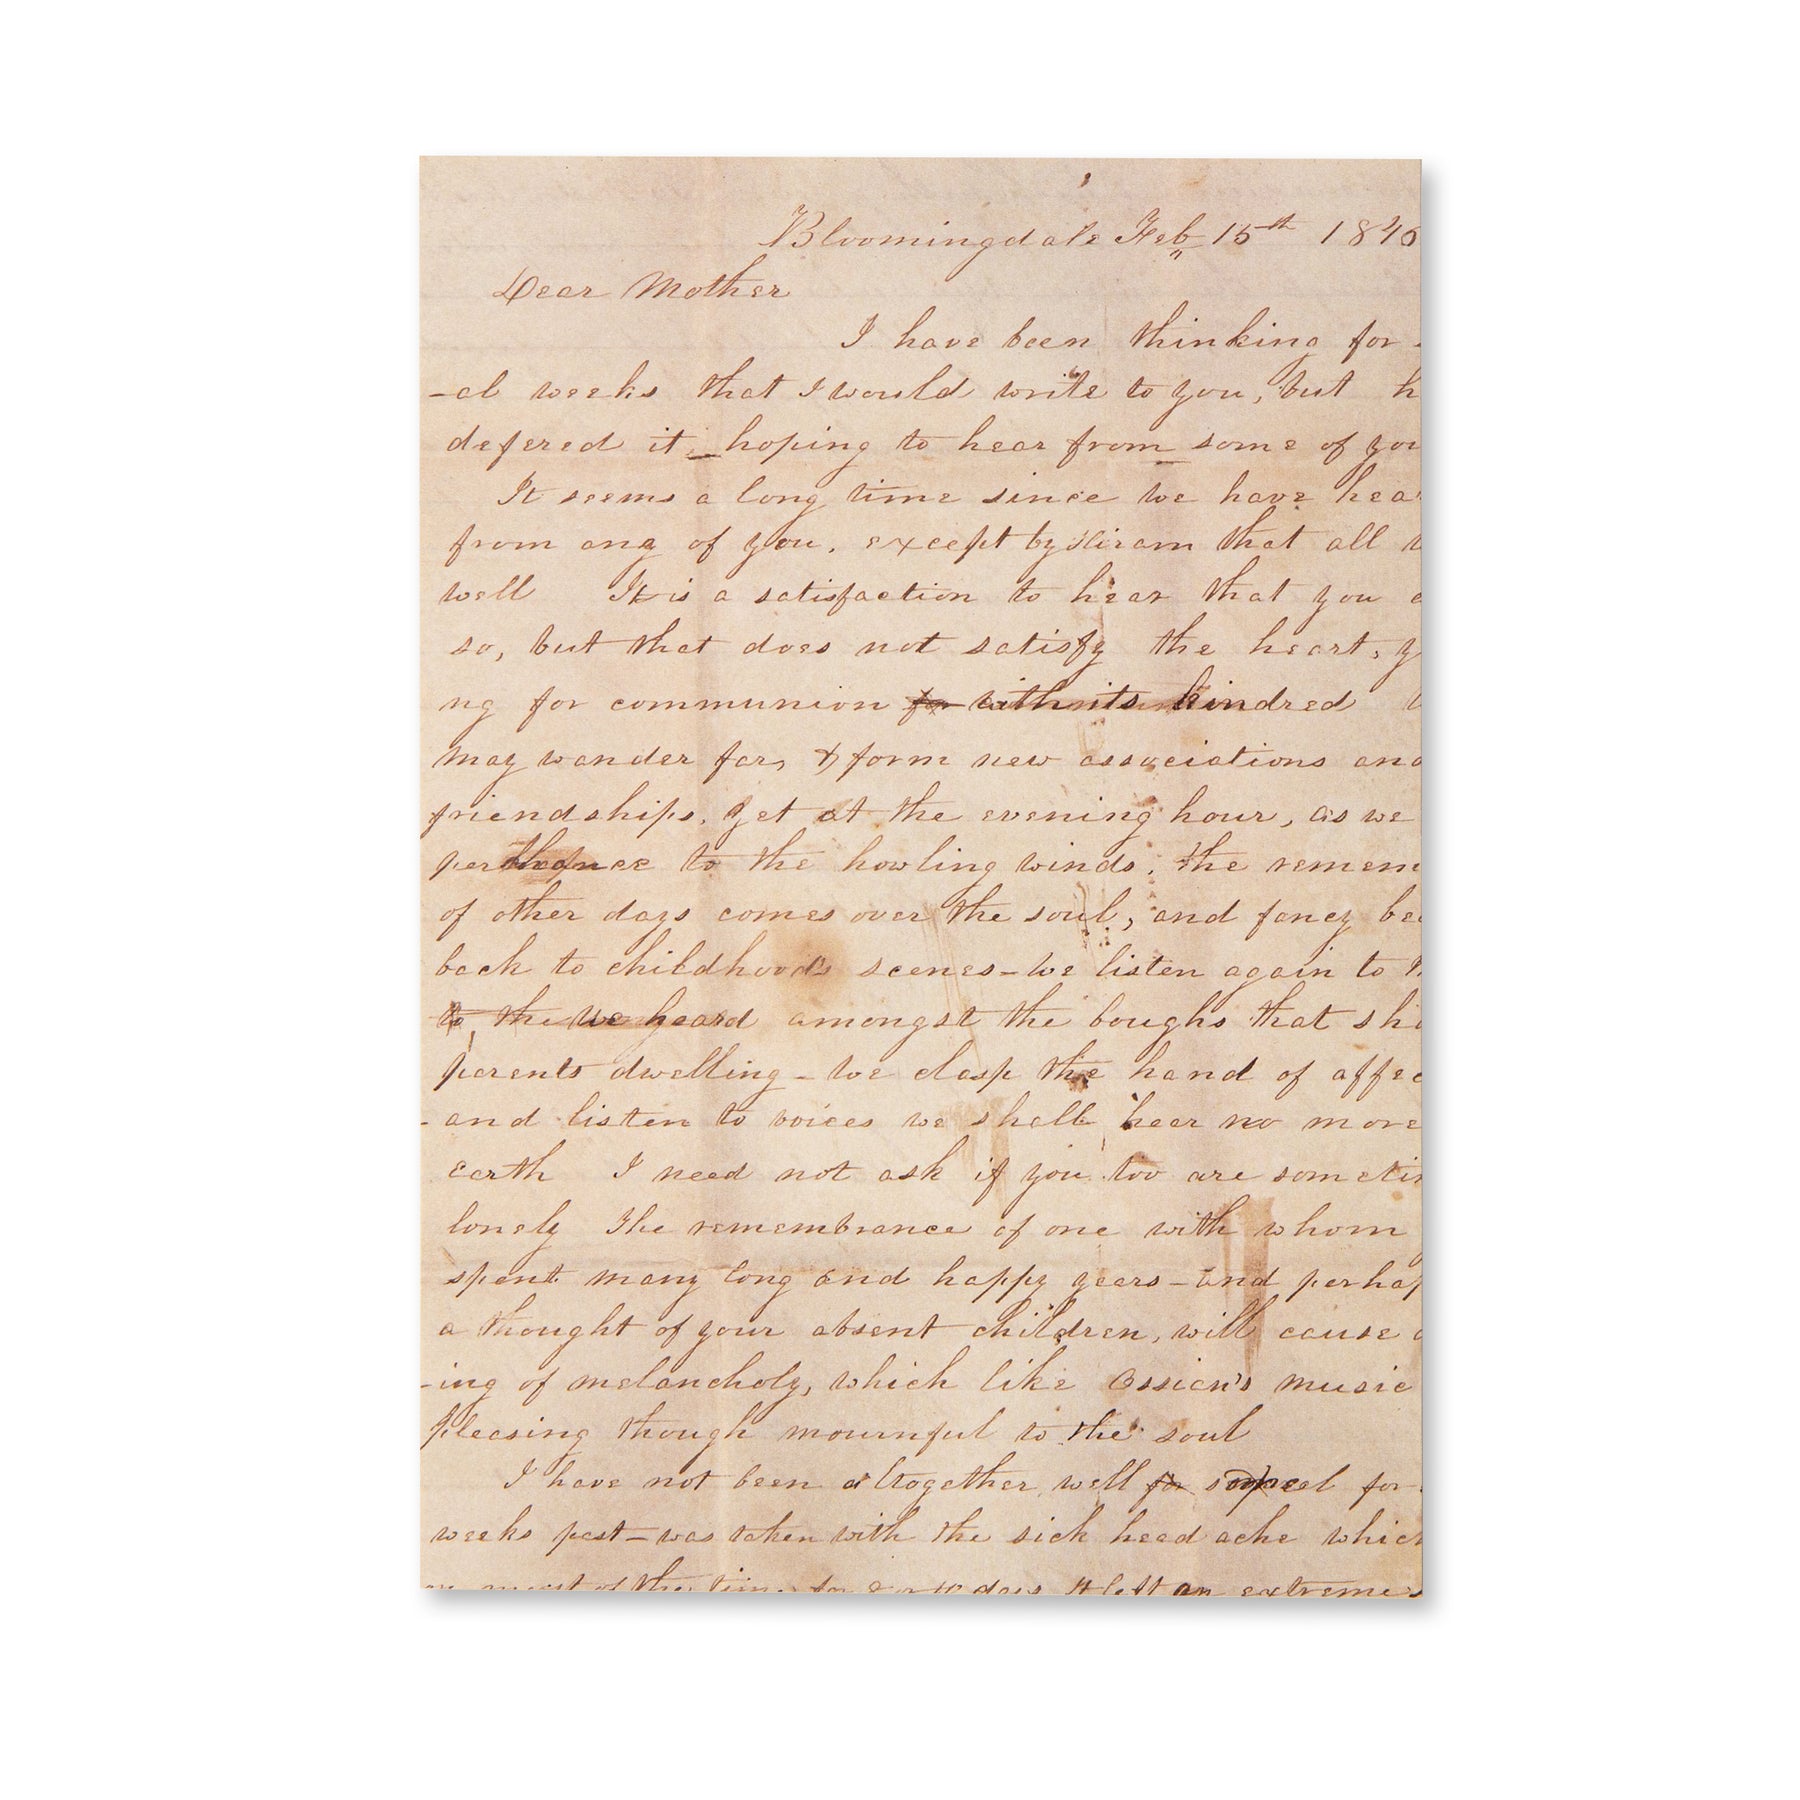 Bloomingdale Feb 15th 1846
Dear Mother
I have been thinking for
-al weeks that I would write to you, but h
defered it - hoping to hear from some of you
It seems a long time since we have hear
from any of you, except by Hiram that all w
well It is a satisfaction to hear that you a
so, but that does not satisfy the heart, y
ng for communion with its kindred
may wander far, & form new associations and
friendships, yet at the evening hour, as we
perchance to the howling winds, the remem
of other days comes over the soul, and fancy bea
back to childhood's scenes - we listen again to
to the we heard amongst the boughs that sh
parents dwelling - we clasp the hand of affec
- and listen to voices we shall hear no more
earth I need not ask if you too are sometim
lonely The remembrance of one with whom
spent many long and happy years - and perhap
a thought of your absent children, will cause a
-ing of melancholy, which like Ossian's music
pleasing though mournful to the soul
I have not been altogether well for for
weeks past - was taken with the sick head ache which
most of the time for days It left an extreme